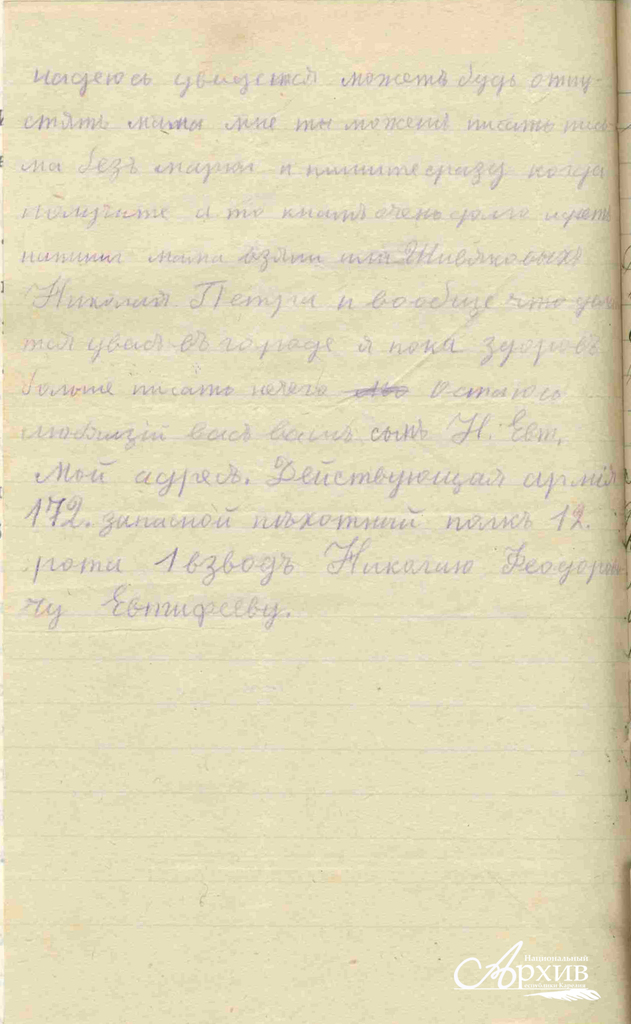 надеюсь увидется можетъ будь отпу-
стятъ мама мне ты можешъ писать пись-
ма безъ марки и пишите сразу когда
получите а то кнамъ очень долго идетъ
напиши мама взяли или Живяковыхъ
Николая Петра и вообще что дела
тся увасъ въ городе я пока здоровъ
больше писать нечего Остаюсь
любящій васъ вашъ сынъ Н. Евт.
Мой адресъ. Действующая армія
172. запасной пѣхотный полкъ 12.
рота 1 взводъ Николаю Феодорови
чу Евтифееву.
Национальный
Архив
республики Карелия